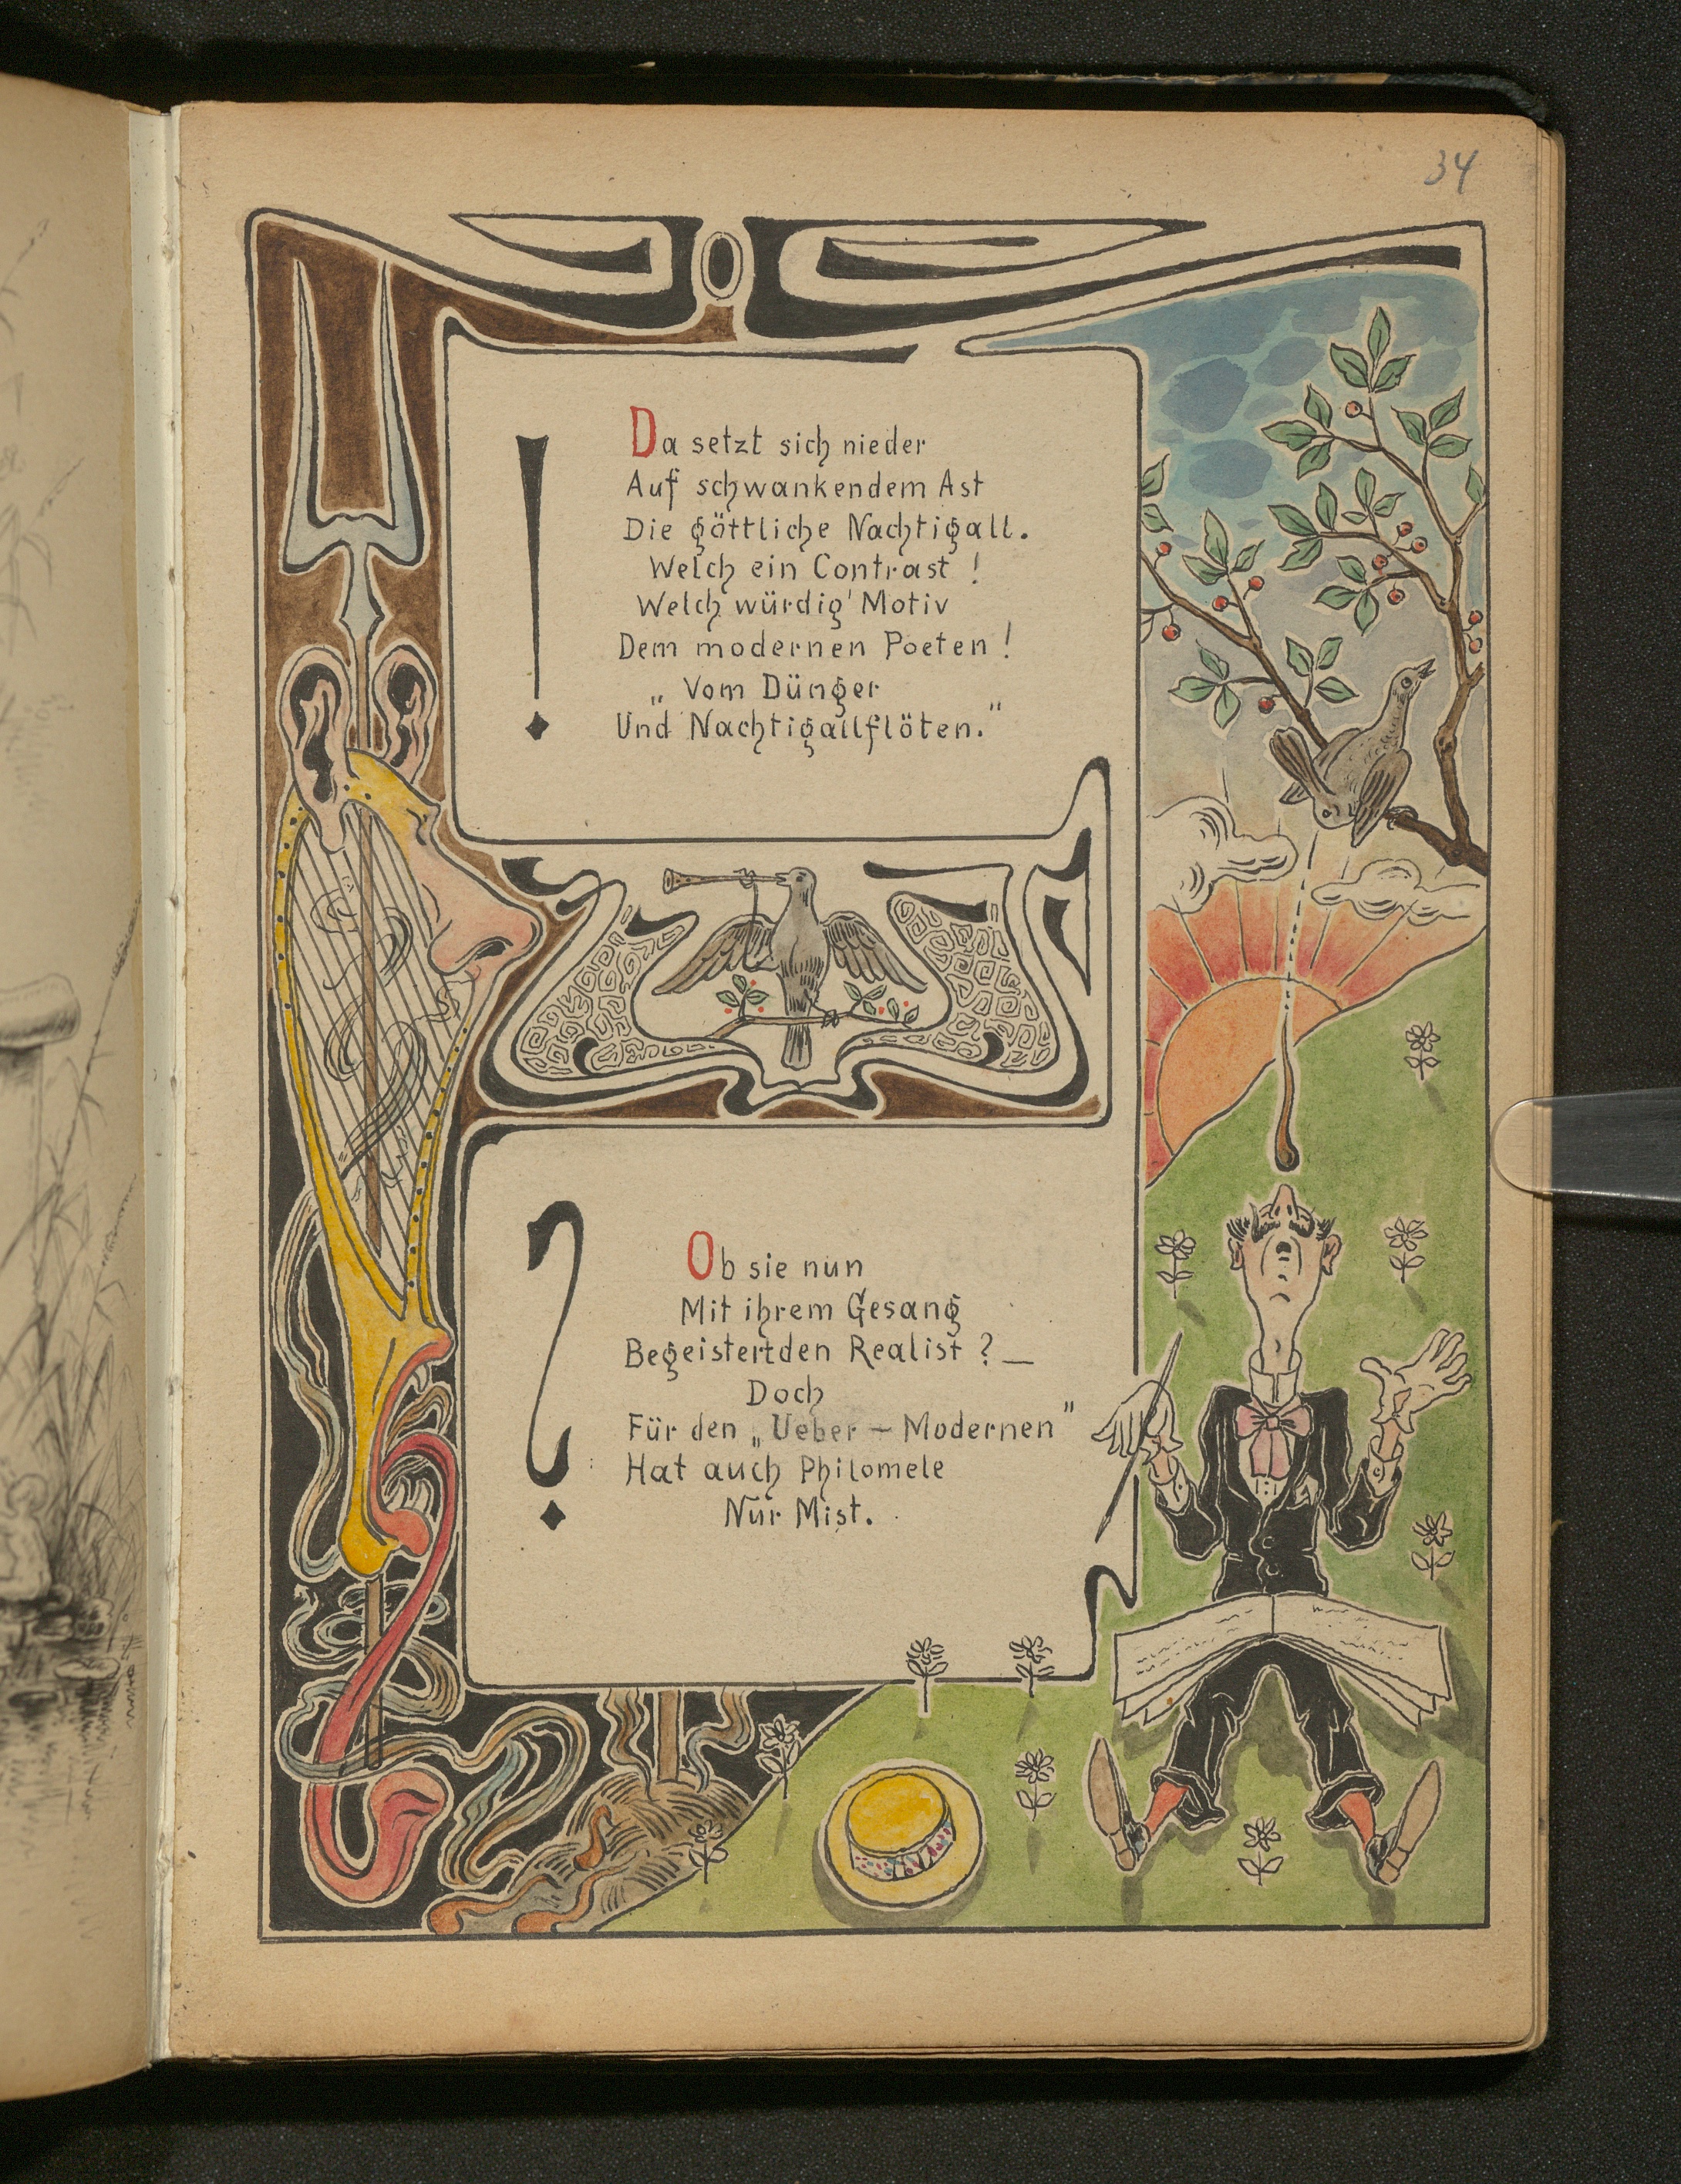 34
!
Da setzt sich nieder
Auf schwankendem Ast
Die göttliche Nachtigall.
Welch ein Contrast !
Welch würdig' Motiv
Dem modernen Poeten !
„ Vom Dünger
Und Nachtigallflöten.“
?
Ob sie nun
Mit ihrem Gesang
Begeistert den Realist ? —
Doch
Für den „Ueber – Modernen“
Hat auch Philomele
Nur Mist.